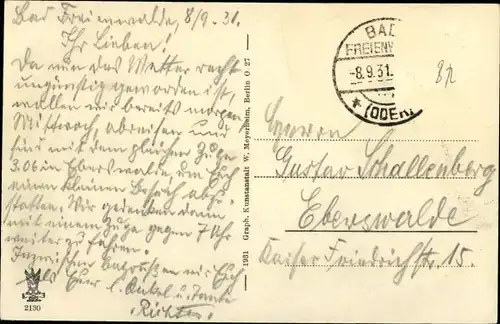 Bad Freienwalde, 8/9.31.
Ihr Lieben!
Da nun das Wetter recht
ungünstig geworden ist,
wollen wir bereits morgen
Mittwoch, abreisen und
sind mit dem gleichen Zuge
3.06 in Eberswalde, um Euch
einen kleinen Besuch abzu-
statten. Wir gedenken dann
mit einem Zuge gegen 7 Uhr
weiter zu fahren.
Inzwischen begrüßen wir Euch
als Euer l. Onkel u. Tante
Richter
2130
1931 Graph. Kunstanstalt W. Meyerheim, Berlin O 27
BAD
FREIENW
-8.9.31
* (ODER)
Herrn
Gustav Schallenberg
Eberswalde
Kaiser Friedrichstr. 15.